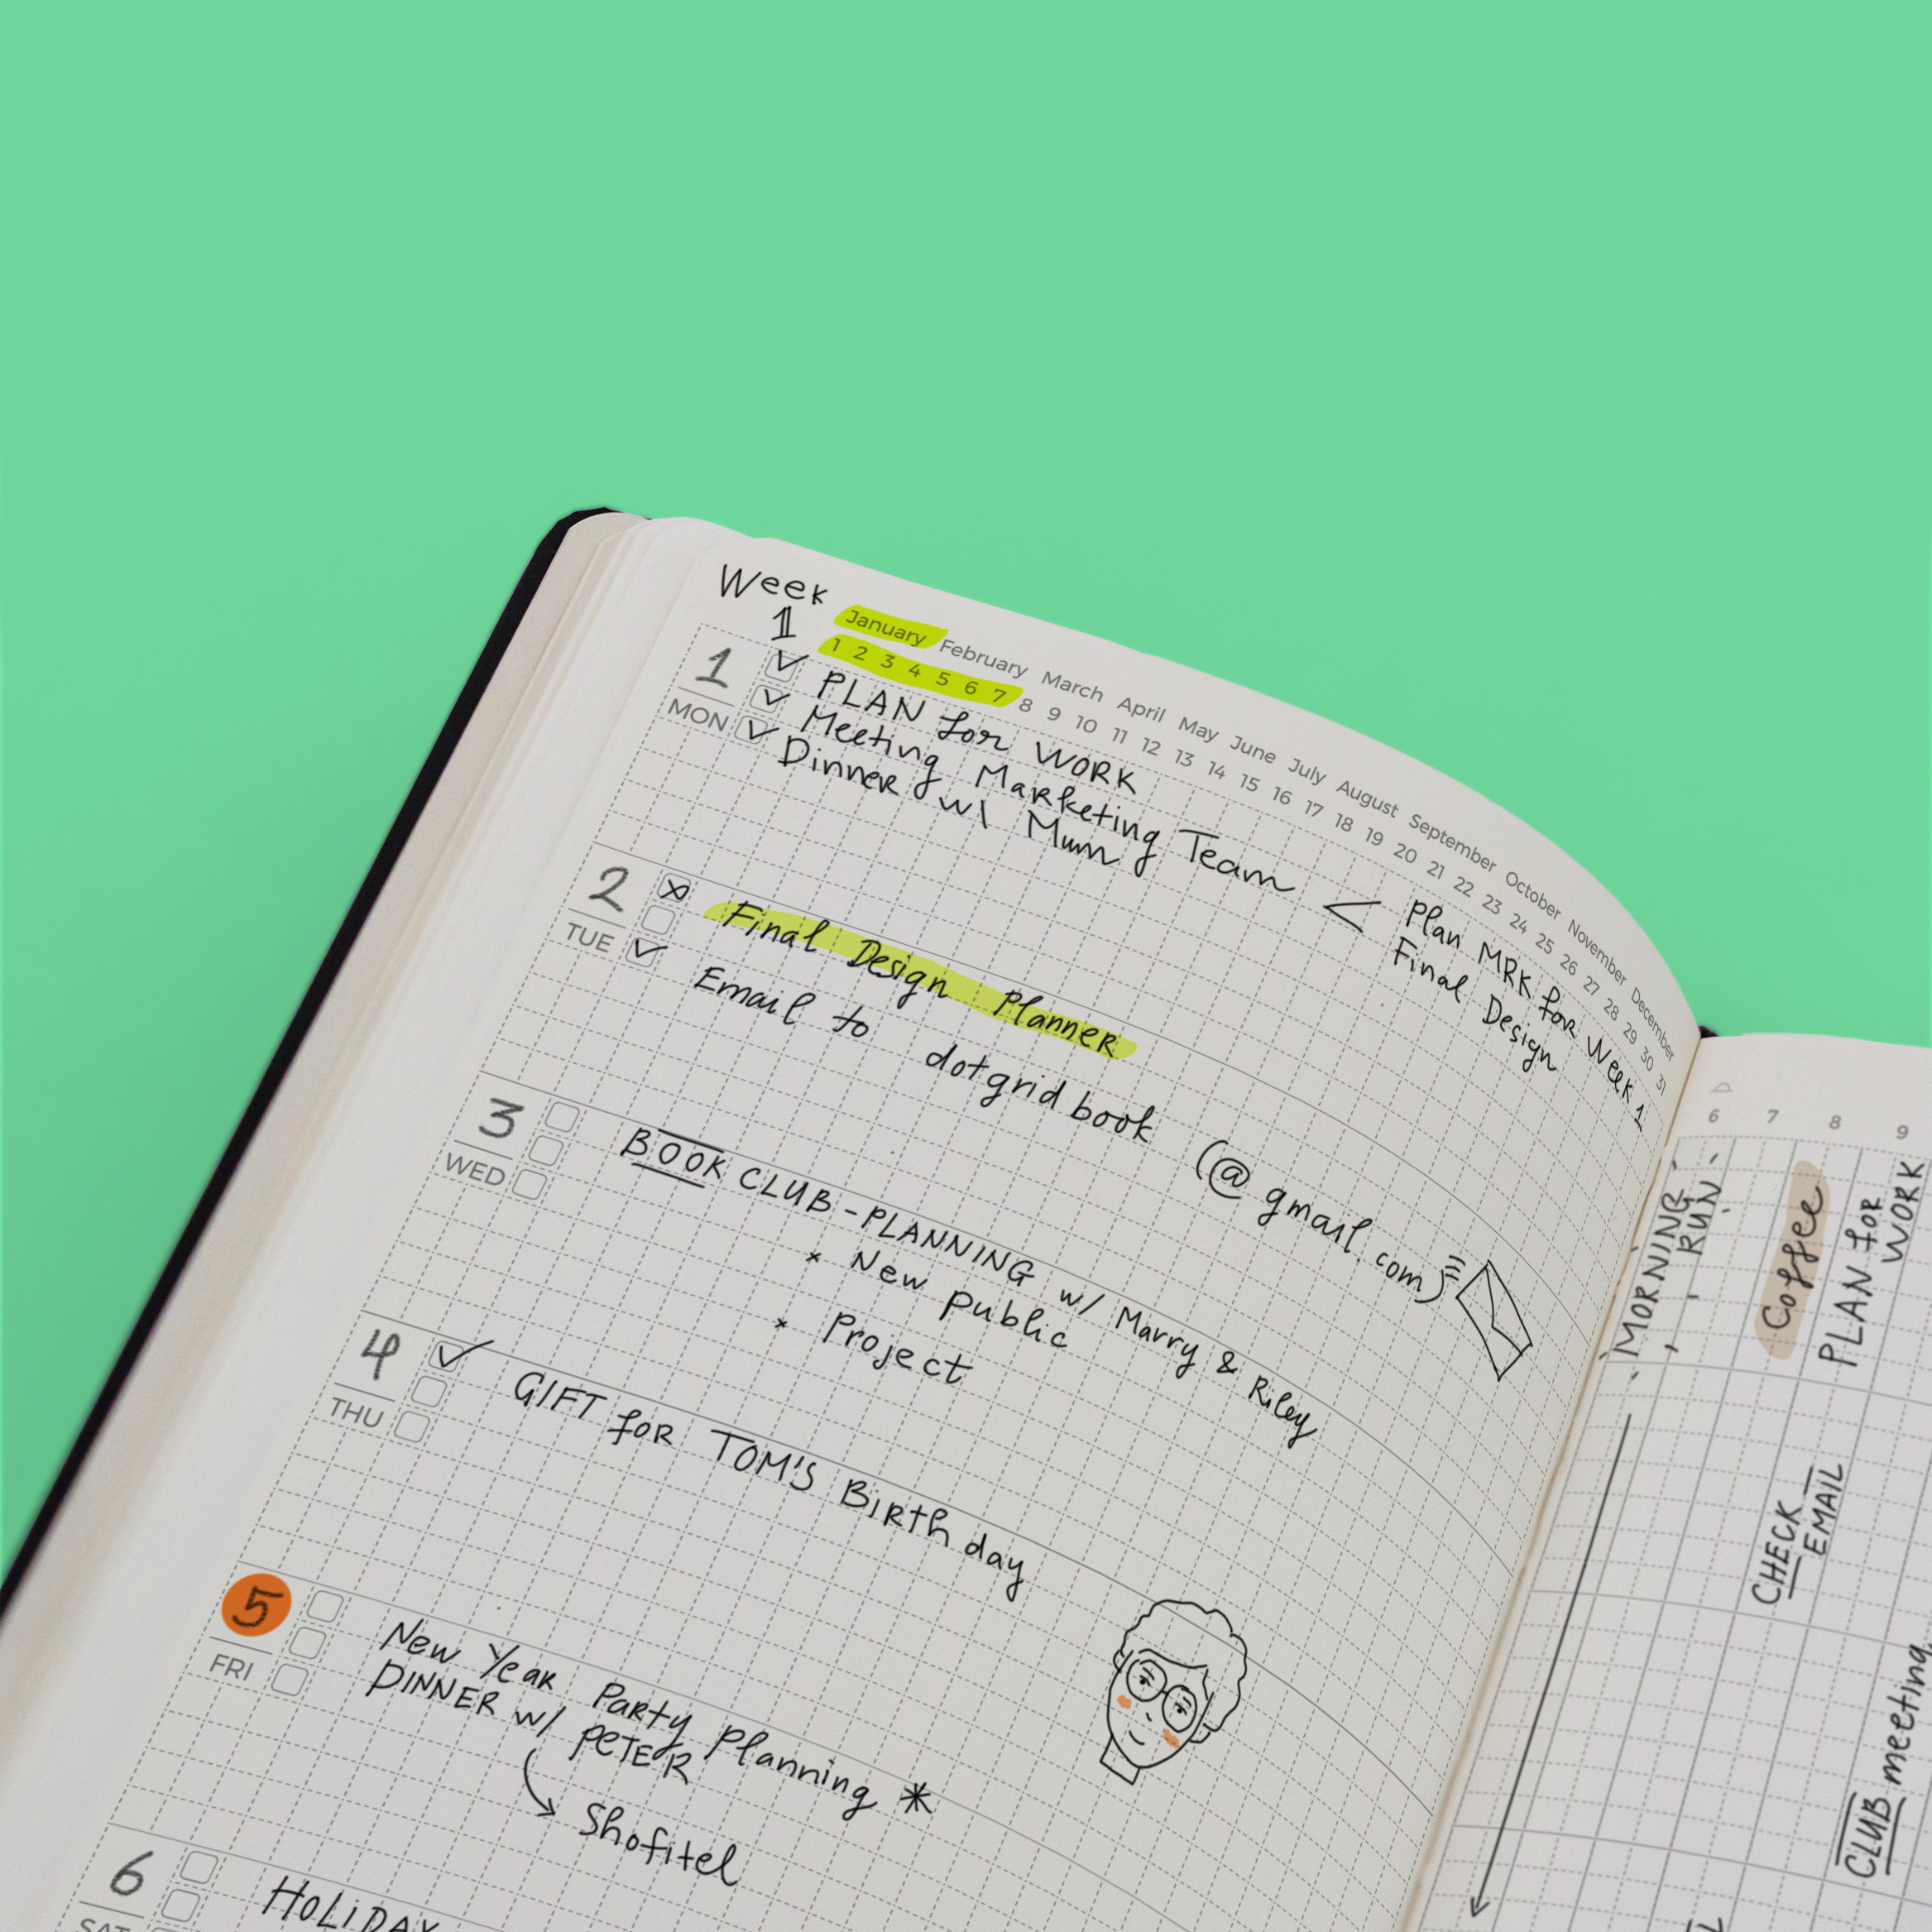 Week
1
January February March April May June July August September October November December
1 2 3 4 5 6 7 8 9 10 11 12 13 14 15 16 17 18 19 20 21 22 23 24 25 26 27 28 29 30 31
1
MON
PLAN for WORK
Meeting Marketing Team < Plan MRK for Week 1
Final Design
Dinner w\ Mum
2
TUE
Final Design Planner
Email to dotgrid book (@gmail.com)
3
WED
BOOK CLUB - PLANNING w/ Marry & Riley
* New Public
* Project
4
THU
GIFT for TOM'S BIRthday
5
FRI
New Year Party Planning *
DINNER w/ PETER
Shofitel
6
SAT
HOLIDAY
6 7 8 9
MORNING
RUN
Coffee
PLAN for
WORK
CHECK
EMAIL
CLUB meeting